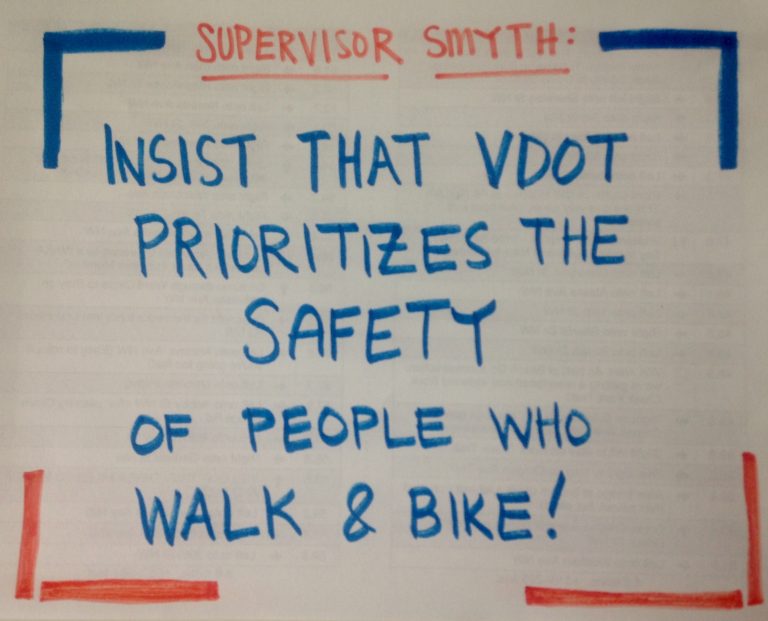 SUPERVISOR SMYTH:
INSIST THAT VDOT
PRIORITIZES THE
SAFETY
OF PEOPLE WHO
WALK & BIKE!